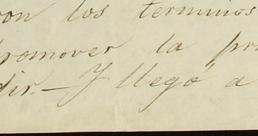 con los terminos
romover la pr
dir.— Y llegó a